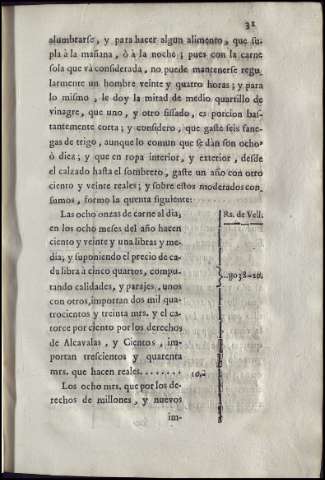 31
alumbrarse, y para hacer algun alimento, que su-
pla à la mañana, ò à la noche; pues con la carne
sola que và considerada, no puede mantenerse regu-
larmente un hombre veinte y quatro horas; y para
lo mismo, le doy la mitad de medio quartillo de
vinagre, que uno, y otro sisado, es porcion bas-
tantemente corta; y considero, que gaste seis fane-
gas de trigo, aunque lo comun que se dàn son ocho
ò diez; y que en ropa interior, y exterior, desde
el calzado hasta el sombrero, gaste un año con otro
ciento y veinte reales; y sobre estos moderados con-
sumos, formo la quenta siguiente:
Las ocho onzas de carne al dia,
en los ocho meses del año hacen
ciento y veinte y una libras y me-
dia, y suponiendo el precio de ca-
da libra à cinco quartos, compu-
tando calidades, y parajes, unos
con otros, importan dos mil qua-
trocientos y treinta mrs. y el ca-
torce por ciento por los derechos
de Alcavalas, y Cientos, im-
portan trescientos y quarenta
mrs. que hacen reales.......
10,2
Rs. de Vell.
Los ocho mrs. que por los de-
rechos de millones, y nuevos
im-